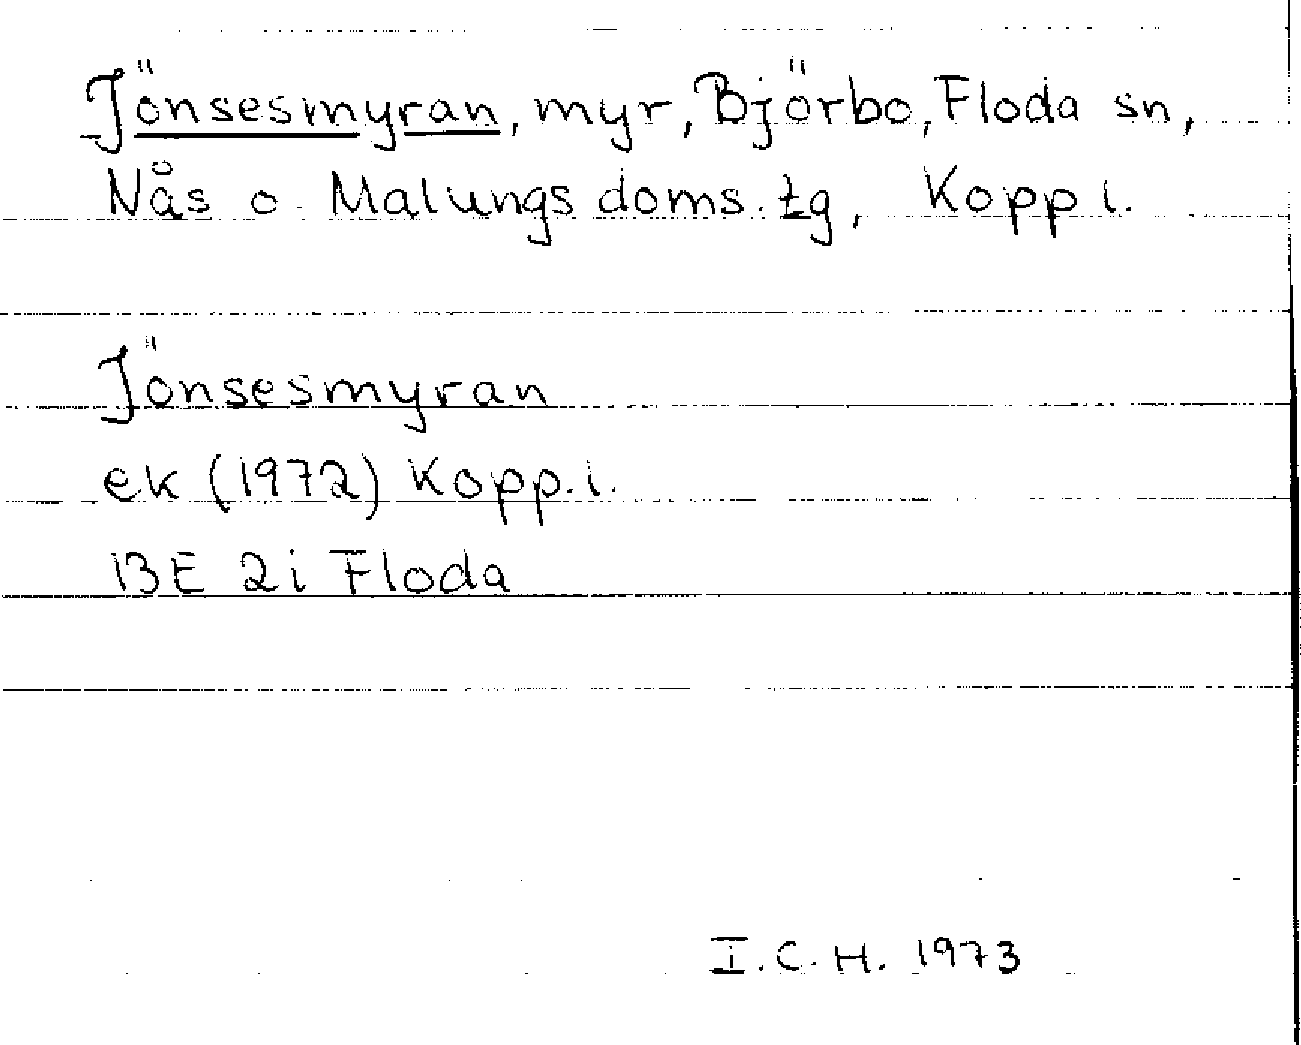 Jönsesmyran, myr, Björbo, Floda sn,
Nås o. Malungs doms. tg, Kopp l.
Jönsesmyran
ek (1972) Kopp. l.
13E 2i Floda
I.C.H. 1973